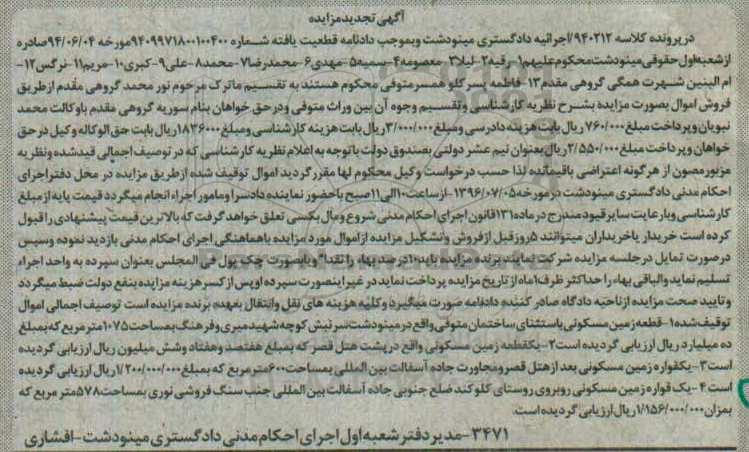 آگهی تجدیدمزایده
درپرونده کلاسه ۹۴۰۲۱۲/اجرائیه دادگستری مینودشت وبموجب دادنامه قطعیت یافته شماره ۹۴۰۹۹۷۱۸۰۰۱۰۰۴۰۰مورخه ۹۴/۰۶/۰۴صادره
ازشعبه‌اول‌حقوقی‌مینودشت‌محکوم‌علیهم۱-رقیه۲-لیلا۳-معصومه۴-سمیه۵-مهدی۶-محمدرضا۷-محمد۸-علی۹-کبری۱۰-مریم۱۱-نرگس۱۲-
ام البنین شهرت همگی گروهی مقدم۱۳-فاطمه پسرکلو همسرمتوفی محکوم هستند به تقسیم ماترک مرحوم نور محمد گروهی مقدم ازطریق
فروش اموال بصورت مزایده بشرح نظریه کارشناسی وتقسیم وجوه آن بین وراث متوفی ودرحق خواهان بنام سوریه گروهی مقدم باوکالت محمد
نبویان وپرداخت مبلغ۷۶۰/۰۰۰ ریال بابت هزینه دادرسی ومبلغ۳/۰۰۰/۰۰۰ریال بابت هزینه کارشناسی ومبلغ۱۸۳۶۰۰۰ریال بابت حق الوکاله وکیل درحق
خواهان وپرداخت مبلغ۲/۵۵۰/۰۰۰ریال‌بعنوان نیم عشر دولتی بصندوق دولت باتوجه به اعلام نظریه کارشناسی که درتوصیف اجمالی قیدشده ونظریه
مزبورمصون از هرگونه اعتراضی باقیمانده لذا حسب درخواست وکیل محکوم لها مقررگردید اموال توقیف شده ازطریق مزایده در محل دفتراجرای
احکام مدنی دادگستری مینودشت درمورخه۱۳۹۶/۰۷/۰۵ ازساعت۱۰الی۱۱صبح باحضور نماینده دادسرا ومامور اجراء انجام میگردد قیمت پایه ازمبلغ
کارشناسی وبارعایت سایر قیود مندرج درماده۱۳۱قانون اجرای احکام مدنی شروع ومال بکسی تعلق خواهد گرفت که بالاترین قیمت پیشنهادی راقبول
کرده است خریدار یاخریداران میتوانند ۵روزقبل ازفروش وتشکیل مزایده ازاموال مورد مزایده باهماهنگی اجرای احکام مدنی بازدید نموده وسپس
درصورت تمایل درجلسه مزایده شرکت نمایند برنده مزایده باید۱۰درصد بهاء را نقدا" ویابصورت چک پول فی المجلس بعنوان سپرده به واحد اجراء
تسلیم نماید والباقی بهاء را حداکثر ظرف۱ماه ازتاریخ مزایده پرداخت نماید در غیراینصورت سپرده او پس از کسر هزینه مزایده بنفع دولت ضبط میگردد
وتایید صحت مزایده ازناحیه دادگاه صادر کننده دادنامه صورت میگیرد وکلیه هزینه های نقل وانتقال بعهده برنده مزایده است توصیف اجمالی اموال
توقیف‌شده۱-قطعه‌زمین‌مسکونی‌باستثنای‌ساختمان‌متوفی‌واقع‌درمینودشت‌سرنبش‌کوچه‌شهیدمیری‌وفرهنگ‌بمساحت۱۰۷۵مترمربع که‌بمبلغ
ده میلیارد ریال ارزیابی گردیده است۲-یکقطعه زمین مسکونی واقع درپشت هتل قصر که بمبلغ هفتصد وهفتاد وشش میلیون ریال ارزیابی گردیده
است۳-یکقواره زمین مسکونی بعد ازهتل قصرومجاورت جاده آسفالت بین المللی بمساحت۶۰۰مترمربع که بمبلغ۱/۲۰۰/۰۰۰/۰۰۰ریال ارزیابی گردیده
است۴-یک قواره زمین مسکونی روبروی روستای کلوکند ضلع جنوبی جاده آسفالت بین المللی جنب سنگ فروشی نوری بمساحت۵۷۸متر مربع که
بمزان۱/۱۵۶/۰۰۰/۰۰۰ریال ارزیابی گردیده است.
۳۴۷۱-مدیردفترشعبه‌اول‌اجرای احکام مدنی دادگستری مینودشت-افشاری